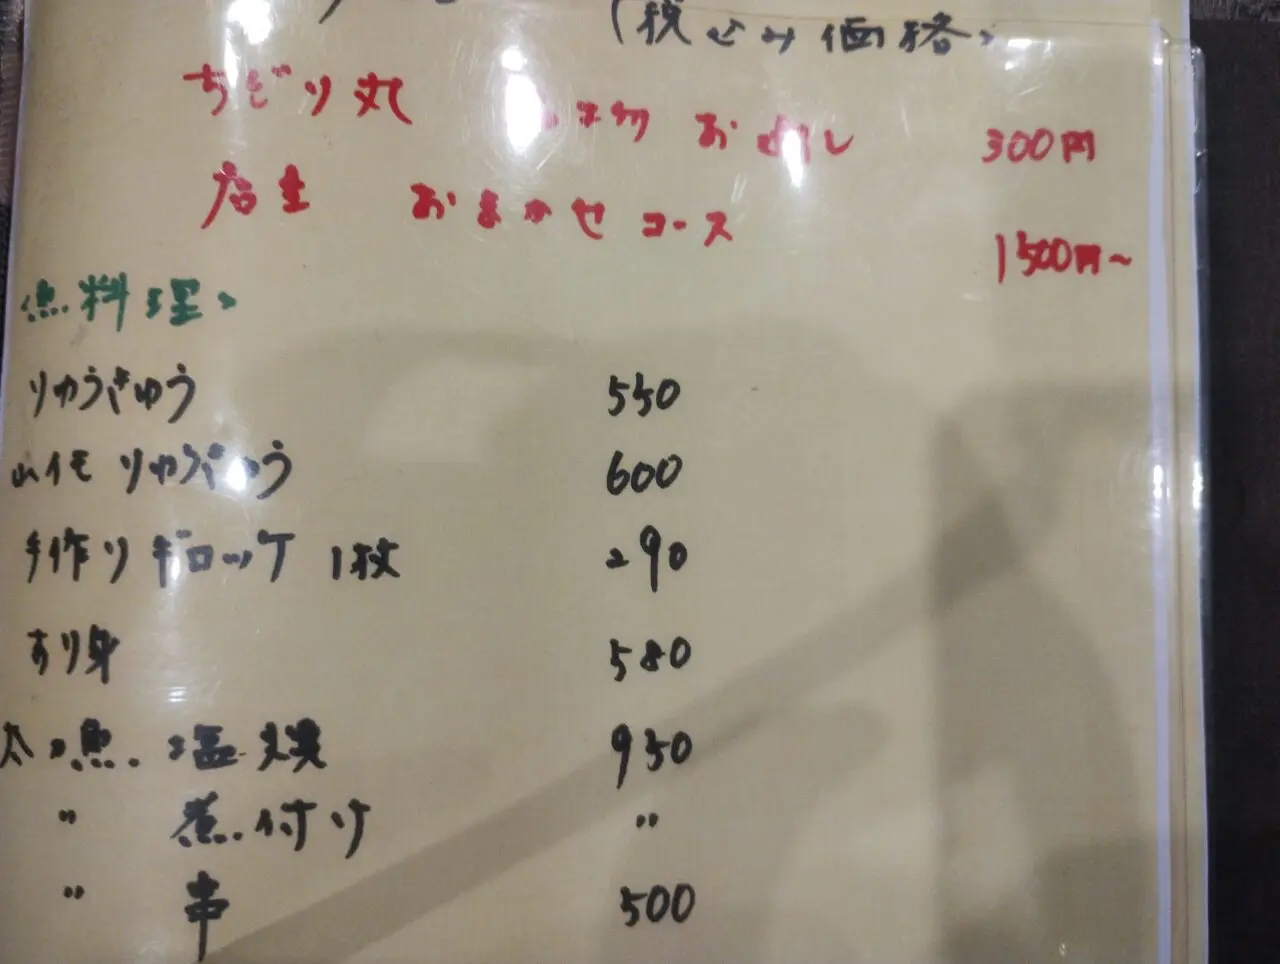 (税込み価格)
ちどり丸 お通し 300円
店主 おまかせコース 1500円~
魚料理
りゅうきゅう 550
山イモ りゅうきゅう 600
手作りギロッケ 1枚 290
すり身 580
太刀魚 塩焼 950
〃 煮付け 〃
〃 串 500